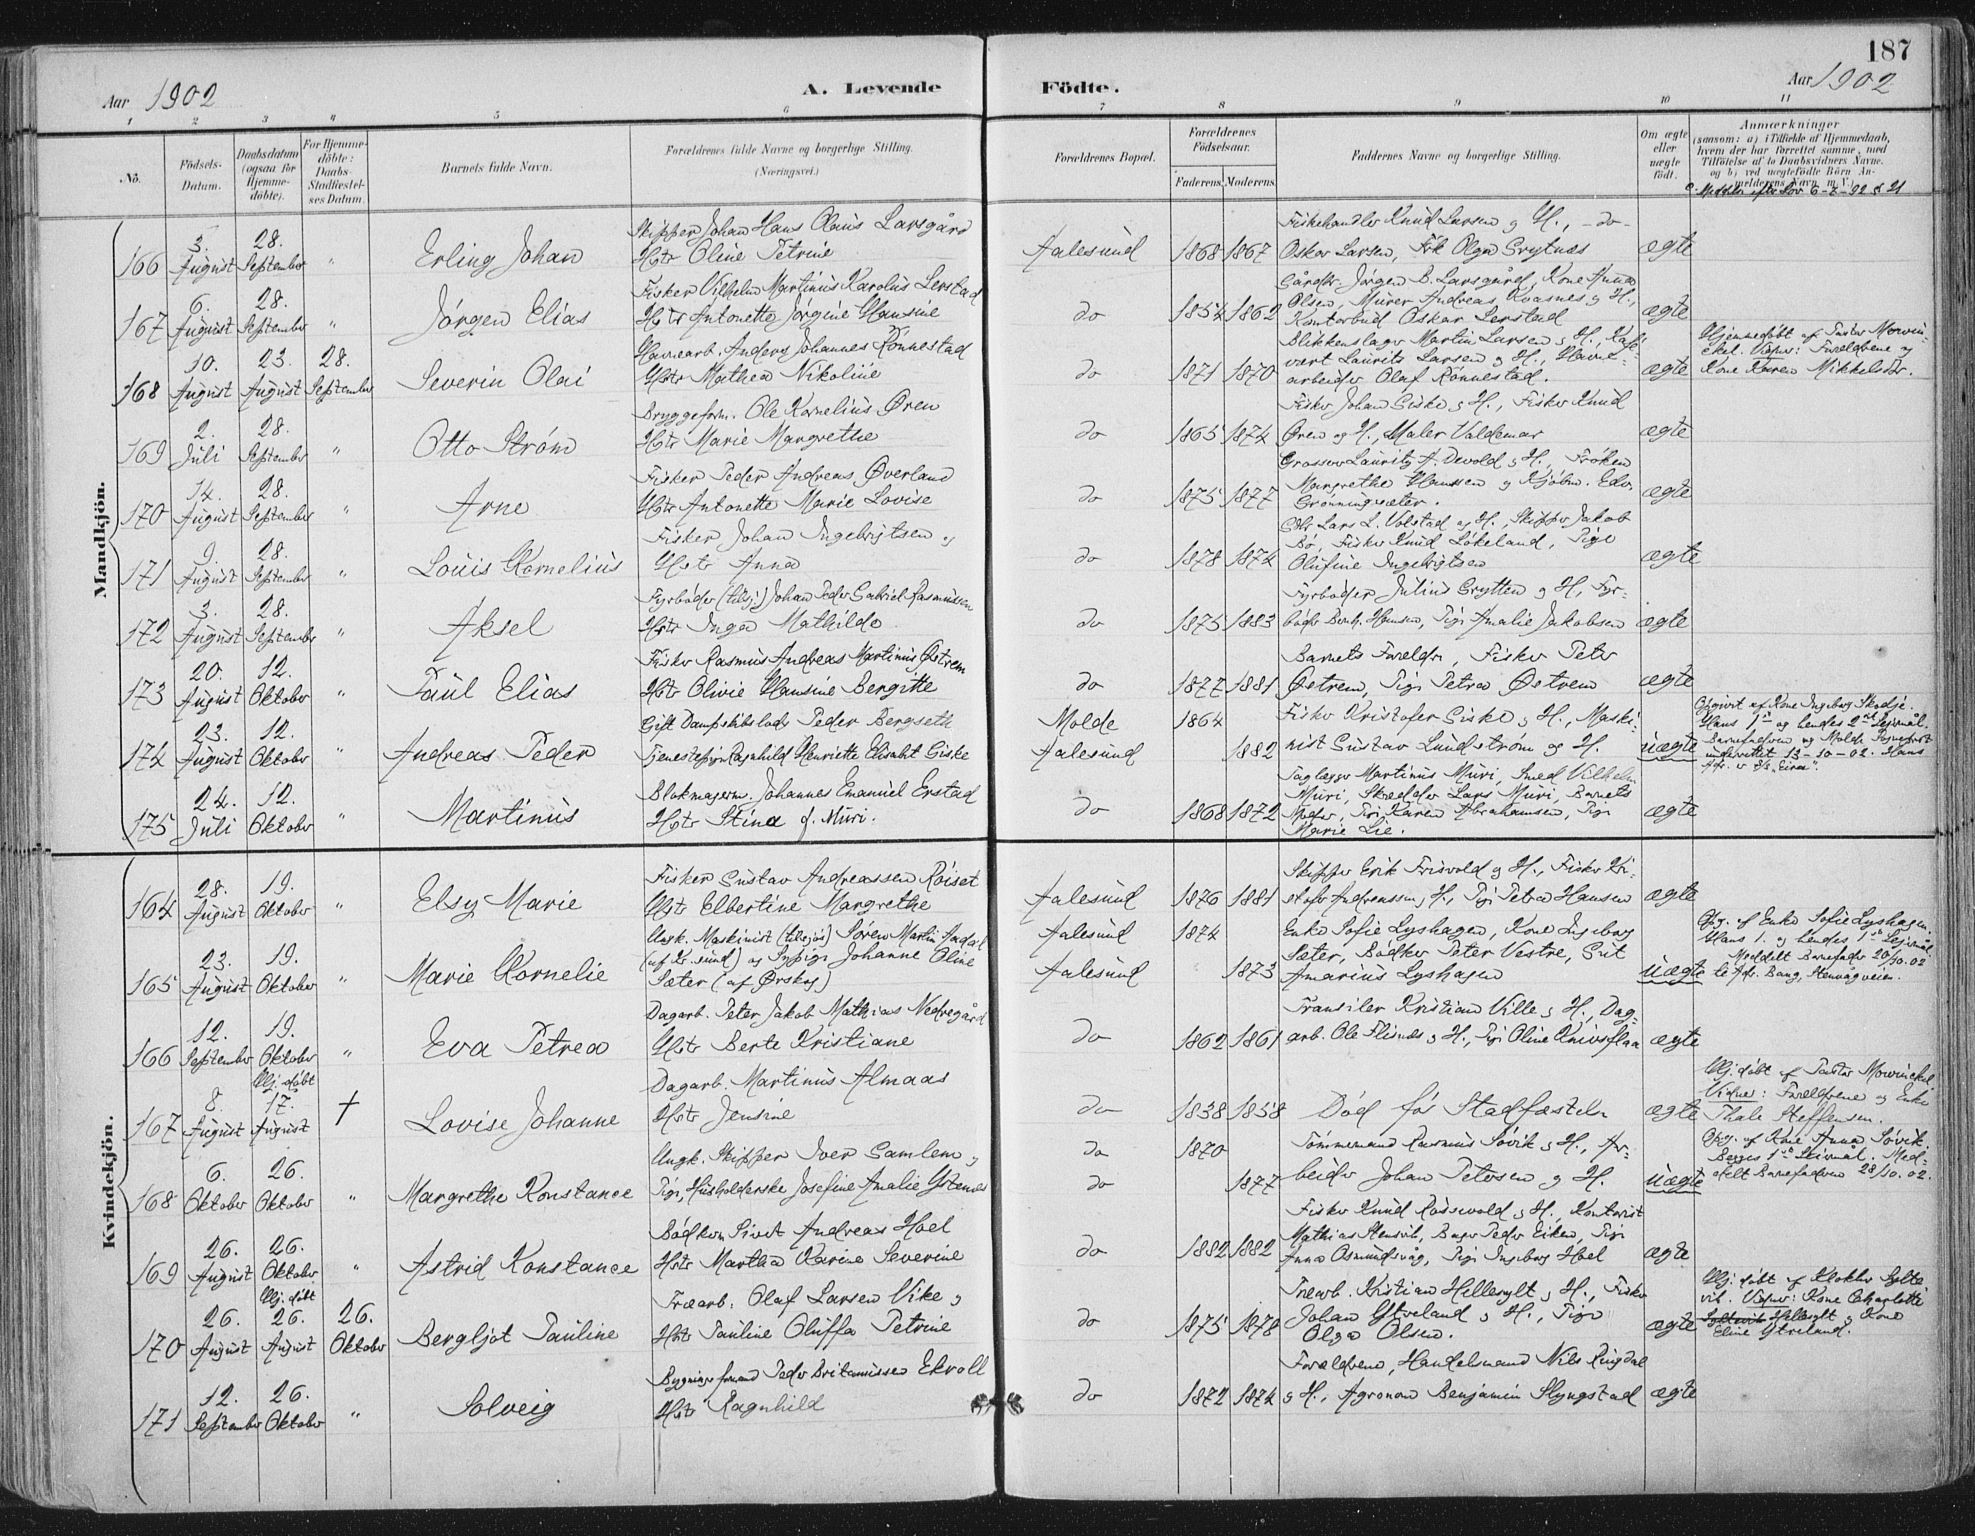 187
Aar 1902
A. Levende
Födte.
Aar 1902
1 2 3 4 5 6 7 8 9 10 11
No.
Födsels-Datum.
Daabsdatum (ogsaa for Hjemme-döbte).
For Hjemme-döbte: Daabs-Stadfæstel-ses Datum.
Barnets fulde Navn.
Forældrenes fulde Navne og borgerlige Stilling. (Næringsvei.)
Forældrenes Bopæl.
Forældrenes Födselsaar.
Faderens. Moderens.
Faddernes Navne og borgerlige Stilling.
Om ægte eller uægte födt.
Anmærkninger
(saasom: a) i Tilfælde af Hjemmedaab,
hvem der har forrettet samme, med
Tilföielse af to Daabsvidners Navne.
og b) ved uægtefödte Börn An-
melderens Navn m. V.)
Mandkjön.
Skipper Johan Hans Olaus Larsgård
Fiskehandler Knud Larsen og H., - do -
166 3. August 28. September " Erling Johan
Hstr Oline Petrine
Aalesund 1868 1867
Oskar Larsen, Frk Olga Grytnes
ægte
Fisker Vilhelm Martinus Karolus Lerstad
Gårdbr. Jørgen B. Larsgård, Kone Anna
167 6. August 28. September " Jørgen Elias
Hstr Antonette Jørgine Hansine
do 1854 1862
Olsen, Murer Andreas Kvasnes og H.,
Kontorbud Oskar Lerstad
ægte
Havnearb. Anders Johannes Rönnestad
Blikkenslager Martin Larsen og H., Kafé-
168 10. August 23. August 28. September Severin Olai
Hstr Mathea Nikoline
do 1871 1870
vert Laurits Larsen og H., Havne-
arbeider Olaf Rönnestad.
ægte
Hjemmedøbt af Pastor Mowin-
ckel. Vidner: Forældrene og
Kone Karen Mikkelsdr.
Bryggeform. Ole Kornelius Øren
Fisker Johan Giske og H., Fisker Knud
169 2. Juli 28. September " Otto Strøm
Hstr Marie Margrethe
do 1865 1874
Øren og H., Maler Valdemar
ægte
Fisker Peder Andreas Øverland
Grosserer Lauritz A. Devold og H., Frøken
170 14. August 28. September " Arne
Hstr Antonette Marie Lovise
do 1875 1877
Margrethe Hanssen og Kjøbm. Edv.
Grønningsæter.
ægte
Fisker Johan Ingebrigtsen og
Gbr Lars L. Volstad og H., Skipper Jakob
171 9. August 28. September " Louis Kornelius
Hstr Anna
do 1878 1874
Bø, Fisker Knud Løkeland, Pige
Olufine Ingebrigtsen
ægte
Fyrbøder (tilsjø) Johan Peder Gabriel Rasmussen
Fyrbøder Julius Grytten og H., Fyr-
172 3. August 28. September " Aksel
Hstr Inga Mathilde
do 1875 1883
bøder Bernh. Hansen, Pige Amalie Jakobsen
ægte
Fisker Rasmus Andreas Martinus Østrem
Barnets Forældre, Fisker Peter
173 20. August 12. Oktober " Paul Elias
Hstr Olivie Hansine Bergitte
do 1877 1881
Østrem, Pige Petra Østrem
ægte
Gift Dampskibslods Peder Bergseth
Molde 1864
Fisker Kristofer Giske og H., Maski-
174 23. August 12. Oktober " Andreas Peder
Tjenestepige Ragnhild Henriette Elisabet Giske
Aalesund 1882
nist Gustav Lundstrøm og H.
uægte
Opgivet af Kone Ingeborg Skodje.
Hans 1ste og hendes 2net Leiermål.
Barnefaderen og Molde Sogneprest
underrettet 13-10-02. Hans
Adr. er S/S "Eira".
Blokmagerm. Johannes Emanuel Erstad
Taglægger Martinus Muri, Smed Vilhelm
175 24. Juli 12. Oktober " Martinus
Hstr Stina f. Muri.
do 1868 1872
Muri, Skredder Lars Muri, Barnets
Moder, Pige Karen Abrahamsen, Pige
Marie Lie.
ægte
Kvindekjön.
Fisker Gustav Andreassen Röiset
Skipper Erik Frisvold og H., Fisker Kri-
164 28. August 19. Oktober " Elsy Marie
Hstr Elbertine Margrethe
Aalesund 1876 1881
stofer Andreassen og H., Pige Petra Hansen
ægte
Ungk. Maskinist (tilsjøs) Søren Martin Aadal
Aalesund 1874
Enke Sofie Lyshagen, Kone Ingeborg
165 23. August 19. Oktober " Marie Kornelie
Johanne Oline
Sæter (af Ørskog)
Aalesund 1873
Sæter, Bødker Peter Vestre, Gut
Amarius Lyshagen
uægte
Opg. af Enke Sofie Lyshagen.
Hans 1. og hendes 1ste Leiermål.
Meddelt Barnefader 20/10.02
Dagarb. Peter Jakob Mathias Nedregård
Kristian Ville og H., Dag-
166 12. September 19. Oktober " Eva Petrea
Hstr Berte Kristiane
do 1862 1861
arb. Ole Flisnes og H., Pige Oline Knivsflaa
ægte
Hj. døbt
Dagarb. Martinus Almaas
167 8. August 17. August † Lovise Johanne
Hstr Jensine
do 1838 1858
Död för Stadfæsteln
ægte
Hj. døbt af Pastor Mowinckel.
Vidner: Forældrene og Enke
Thale Steffensen.
Ungk. Skipper Iver Gamlem og
do 1870
Tömmermand Rasmus Søvik og H., Ar-
168 6. Oktober 26. Oktober " Margrethe Konstance
Pige, Husholderske Josefine Amalie Ystenes
do 1877
beider Johan Petersen og H.
uægte
Opg. af Kone Anna Søvik.
Begges 1ste Leiermål. Med-
delt Barnefaderen 28/10.02.
Andreas Hoel
Fisker Knud Rossevold og H., Kontorist
169 26. August 26. Oktober " Astrid Konstance
Hstr Martha Karine Severine
do 1882 1882
Peder Eiken, Pige
Anna Osmundsvåg, Pige Ingeborg Hoel
ægte
Hj. døbt
Træarb. Olaf Larsen Vike og
Træarb. Kristian Hellesylt og H., Fisker
170 26. August 26. August 26. Oktober Bergljot Pauline
Hstr Pauline Oluffa Petrine
do 1875 1878
Johan Ytreland og H., Pige
Olga Olsen.
ægte
Hj. døbt af Klokker Sylte-
vik. Vidner: Kone Charlotte
Hellesylt og Kone
Eline Ytreland.
Peder Britanussen Ekroll
Forældrene, Handelsmand Nils Ringdal
171 12. September 26. Oktober " Solveig
Hstr Ragnhild
do 1872 1874
og H., Agronom Benjamin Slyngstad
ægte